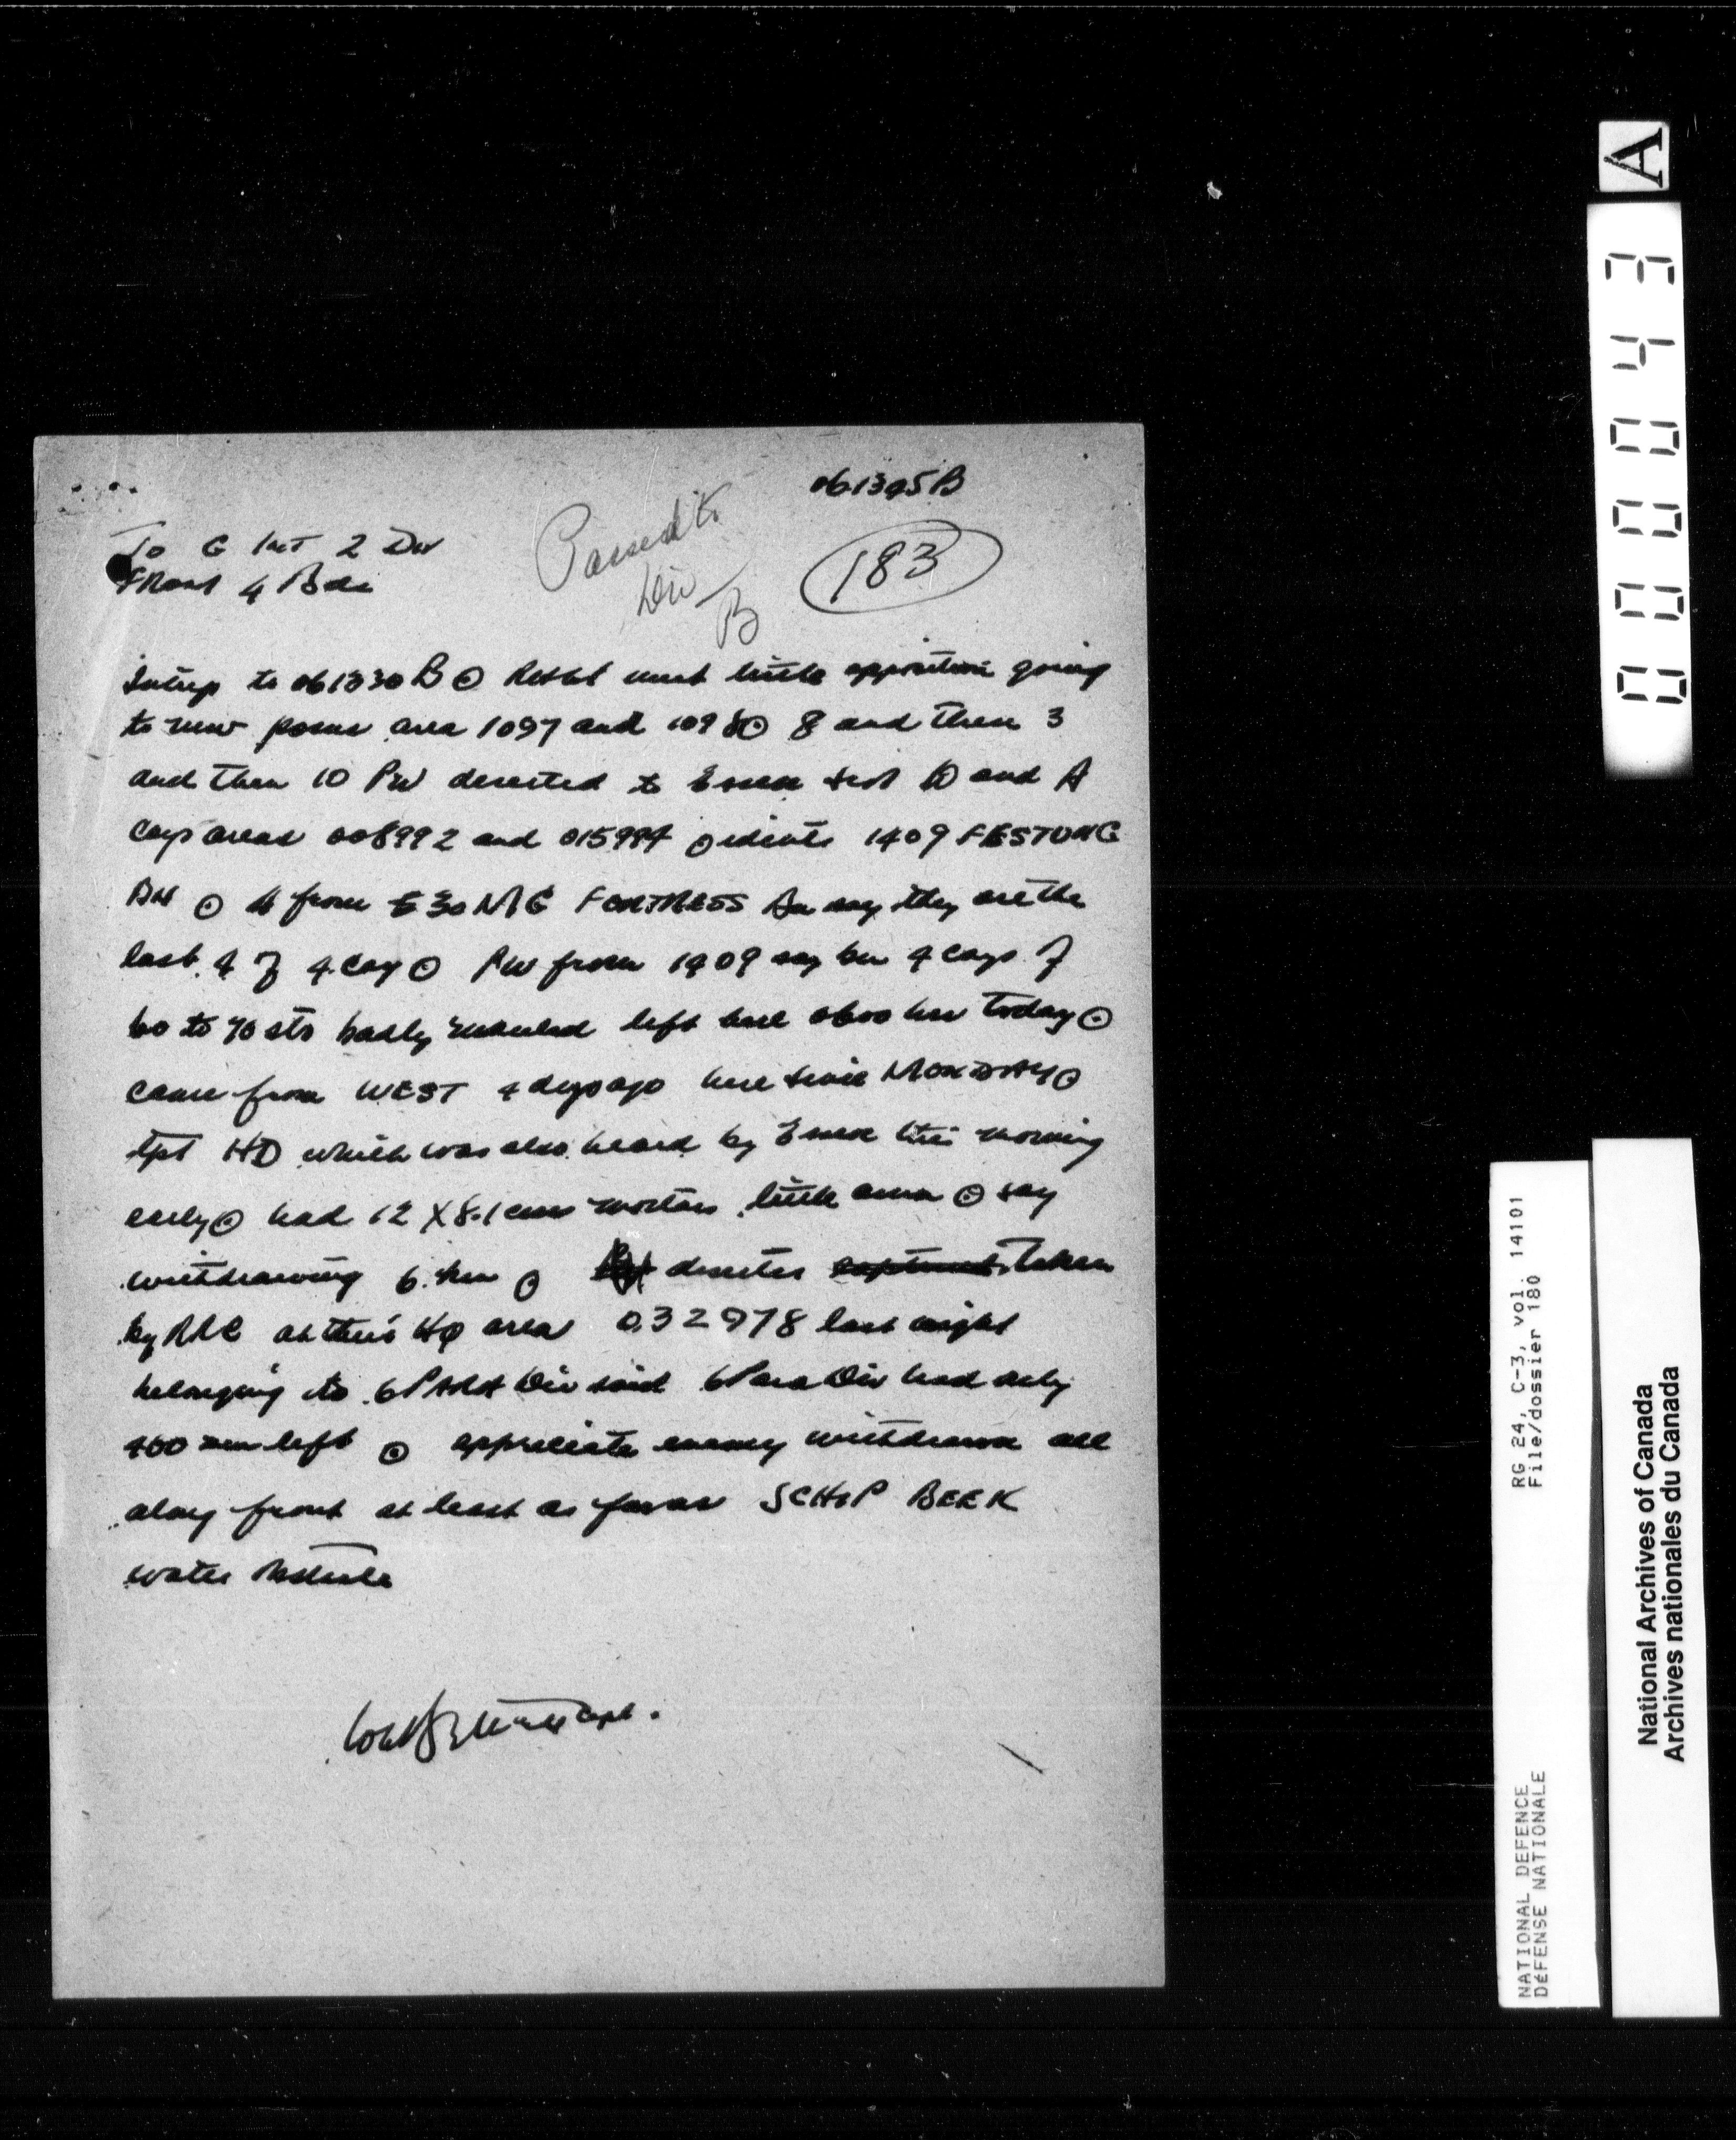 061345B
To G Int 2 Div
From 4 Bde
Passed to
Div
B
183
Intrep to 061330 B ⊙ RHLI meet little opposition going
to new posns area 1097 and 1098 ⊙ 8 and then 3
and then 10 PW deserted to Essex Scot D and A
Coys areas 008992 and 015994 ⊙ idents 1409 FESTUNG
BN ⊙ 4 from E 30 MG FORTRESS Bn say they are the
last 4 of 4 Coy ⊙ PW from 1409 say bn 4 coys of
60 to 70 str badly left here 0600 hrs today ⊙
came from WEST 4 days ago here since MONDAY ⊙
tpt HD which was also heard by Essex this morning
early ⊙ had 12 X 8.1 cm mortars little amn ⊙ say
withdrawing 6 km ⊙ deserter captured taken
by RRC at their HQ area 032978 last night
belonging to 6 PARA Div said 6 Para Div had only
400 men left ⊙ appreciate enemy withdrawn all
along front at least as far as SCHIP BEEK
water obstacle
Capt.
A
000043
RG 24, C-3, vol. 14101
File/dossier 180
NATIONAL DEFENCE
DÉFENSE NATIONALE
National Archives of Canada
Archives nationales du Canada